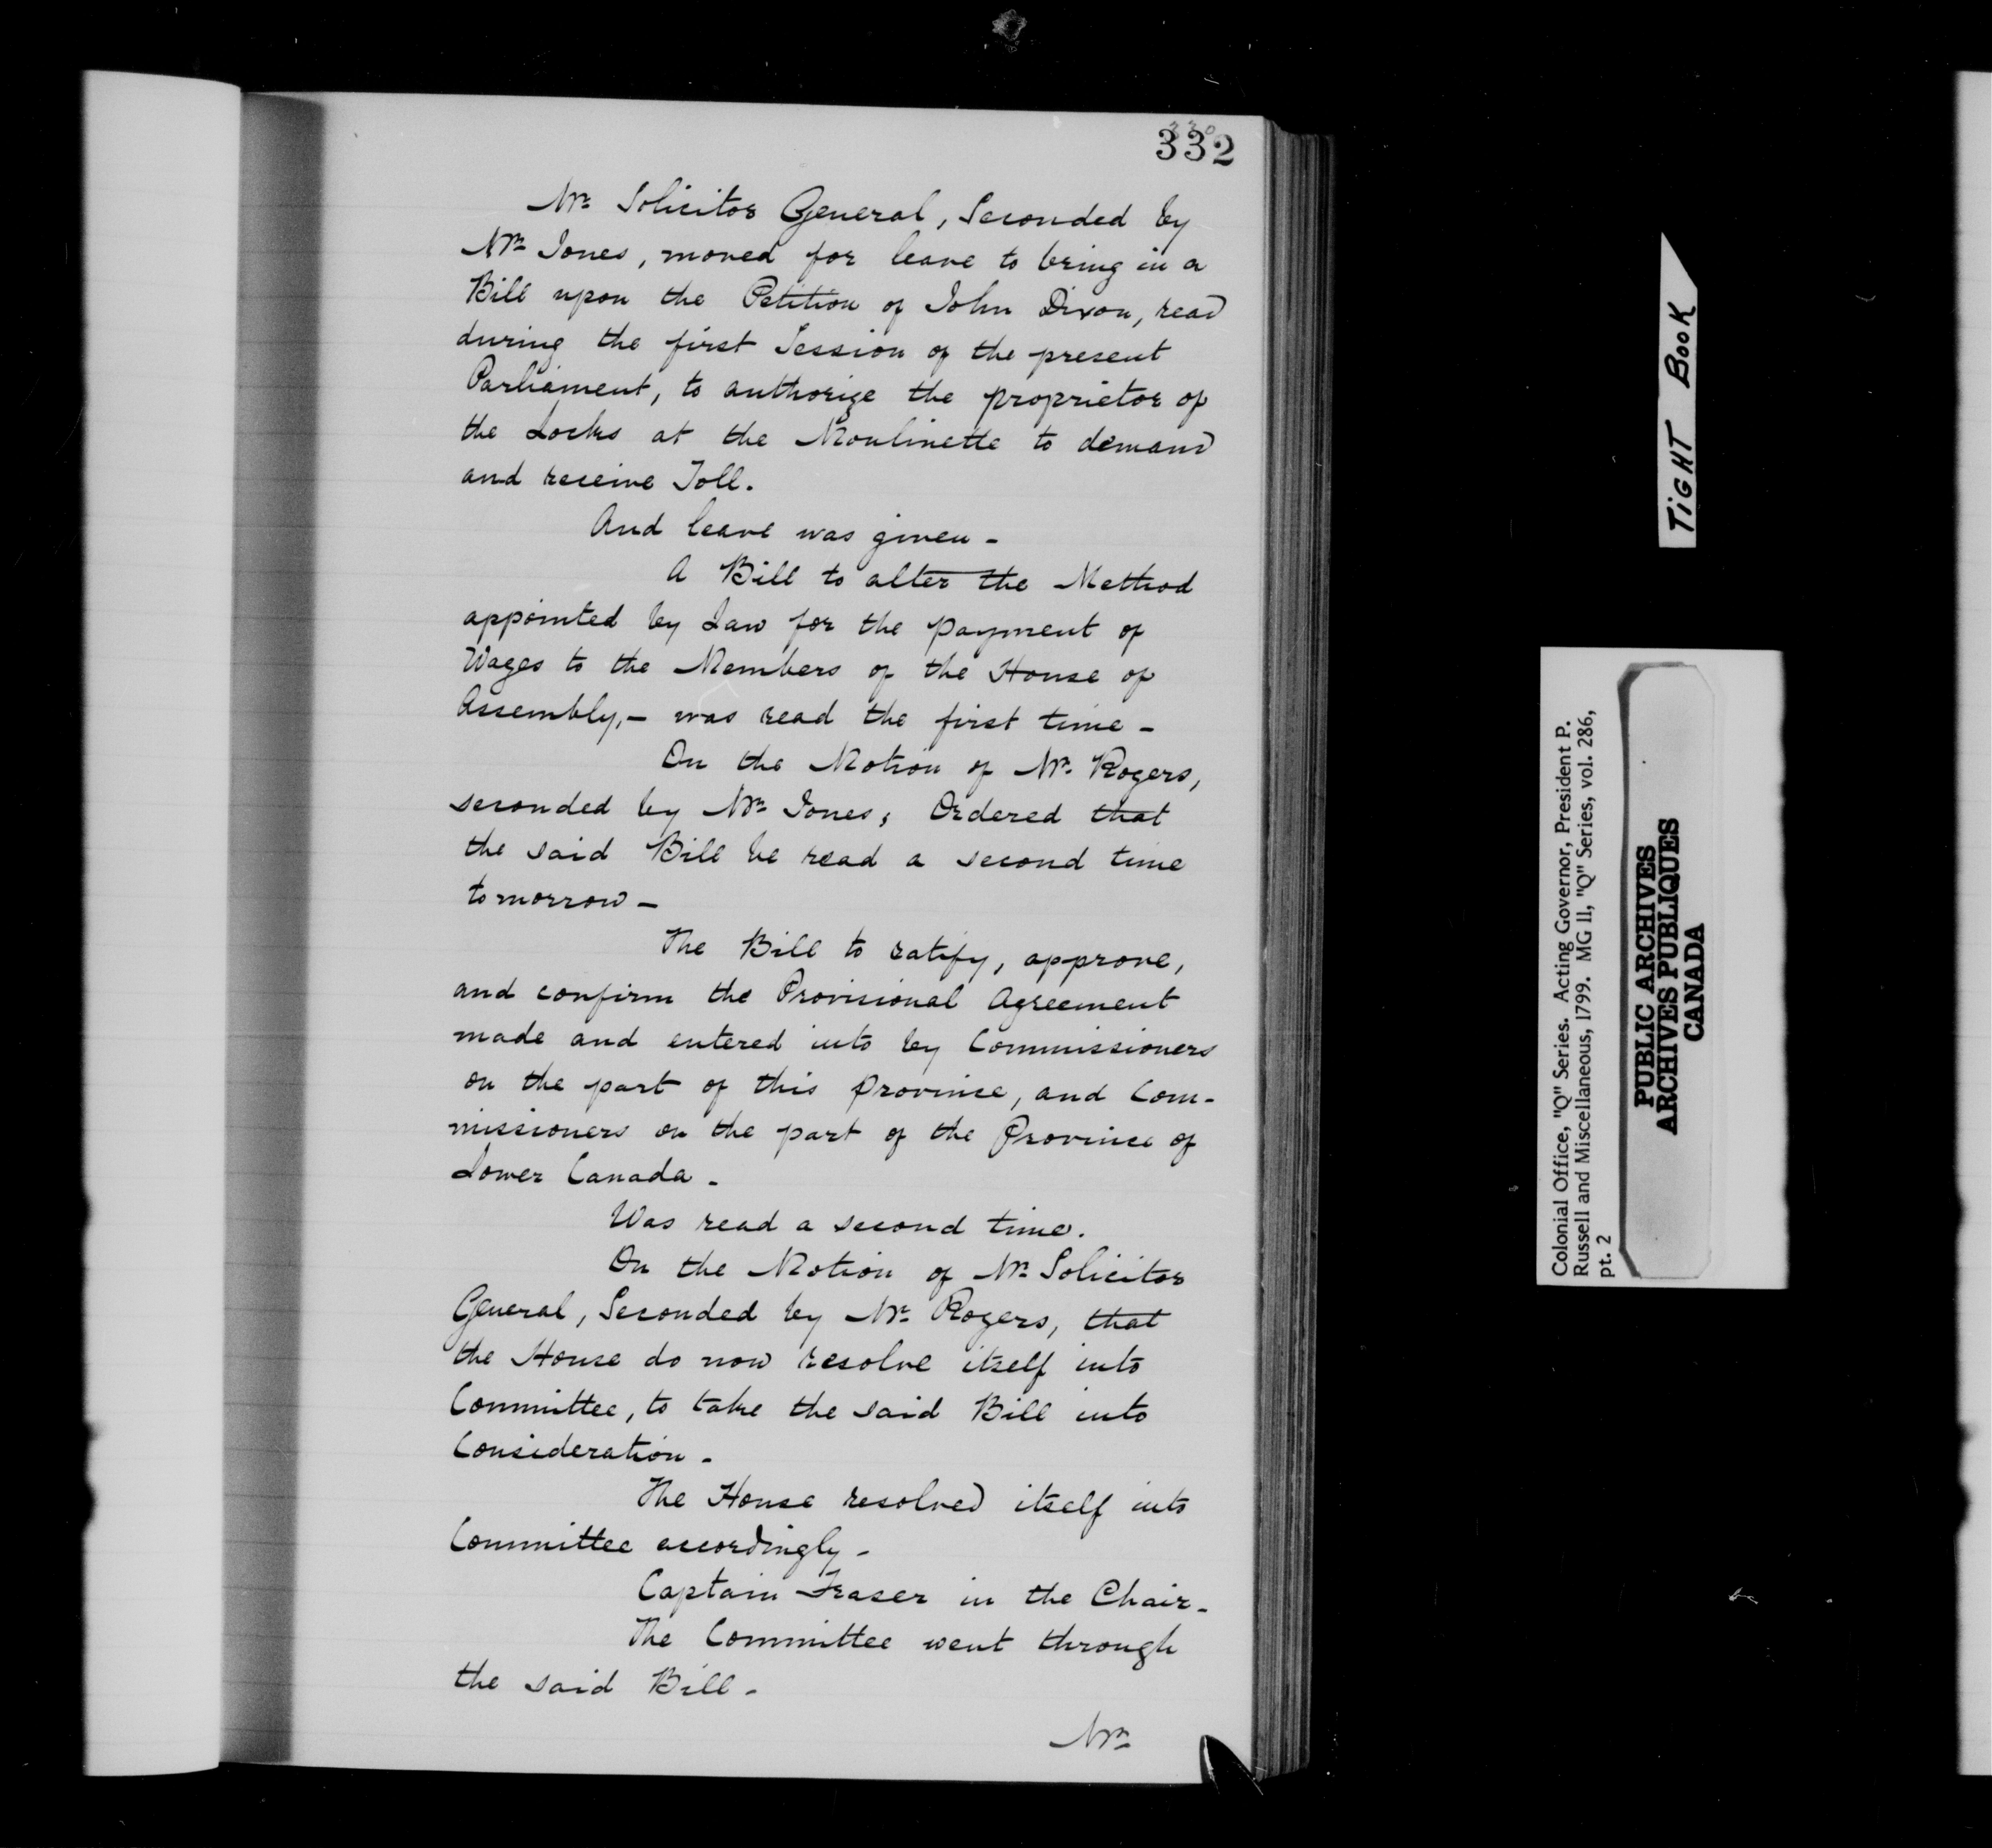 330
332
Mr. Solicitor General, Seconded by
Mr. Jones, moved for leave to bring in a
Bill upon the Petition of John Dixon, read
during the first Session of the present
Parliament, to authorize the proprietor of
the Locks at the Moulinette to demand
and receive Toll.
And leave was given -
A Bill to alter the Method
appointed by Law for the payment of
Wages to the Members of the House of
Assembly, - was read the first time -
On the Motion of Mr. Rogers,
seconded by Mr. Jones, Ordered that
the said Bill be read a second time
tomorrow -
The Bill to ratify, approve,
and confirm the Provisional Agreement
made and entered into by Commissioners
on the part of this province, and Com-
missioners on the part of the Province of
Lower Canada -
Was read a second time.
On the Motion of Mr. Solicitor
General, Seconded by Mr. Rogers, that
the House do now resolve itself into
Committee, to take the said Bill into
Consideration -
The House resolved itself into
Committee accordingly -
Captain Fraser in the Chair -
The Committee went through
the said Bill -
Mr.
TIGHT BOOK
Colonial Office, "Q" Series. Acting Governor, President P.
Russell and Miscellaneous, 1799. MG 11, "Q" Series, vol. 286,
pt. 2
PUBLIC ARCHIVES
ARCHIVES PUBLIQUES
CANADA